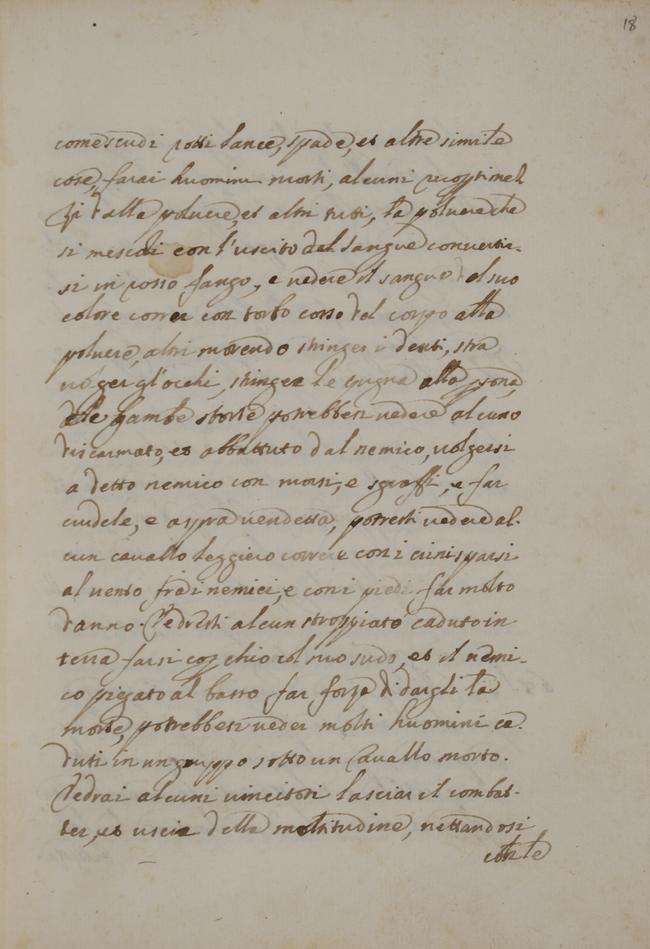 18
come scudi rotti lance, spade, et altre simile
cose, farai huomini morti, alcuni ricoperti
dalla poluere, et altri tutti, la poluere che
si mescoli con l'uscito del sangue conuertir-
si in rosso fango, e uedere il sangue del suo
colore correr con torto corso del corpo alla
poluere, altri morendo stringer i denti, stra
uolger gl'occhi, stringer le pugna alla persona,
e le gambe storte potrebbesi uedere alcuno
disarmato, et abbattuto dal nemico, uolgersi
a detto nemico con morsi, e sgraffi, e far
crudele, e aspra uendetta, potresti uedere al-
cun cauallo leggiero correre con i crini sparsi
al uento fra i nemici, e con i piedi far molto
danno. Vedresti alcun stroppiato caduto in
terra farsi coperchio col suo scudo, et il nemi-
co piegato al basso far forza di dargli la
morte, potrebbesi ueder molti huomini ca-
duti in un gruppo sotto un Cauallo morto.
Vedrai alcuni uincitori lasciar il combat-
ter, et uscir della moltitudine, nettandosi
con le